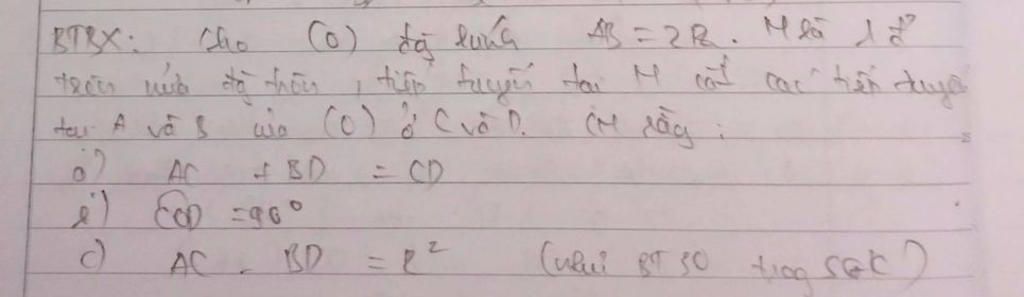 BTBX: Cho (O) đg kính AB = 2R. M là 1 đ'
trên nửa đg tròn, tiếp tuyến tại M cắt các tiếp tuyến
tại A và B của (O) ở C và D. CM rằng:
a) AC + BD = CD
b) COD = 90°
c) AC . BD = R²